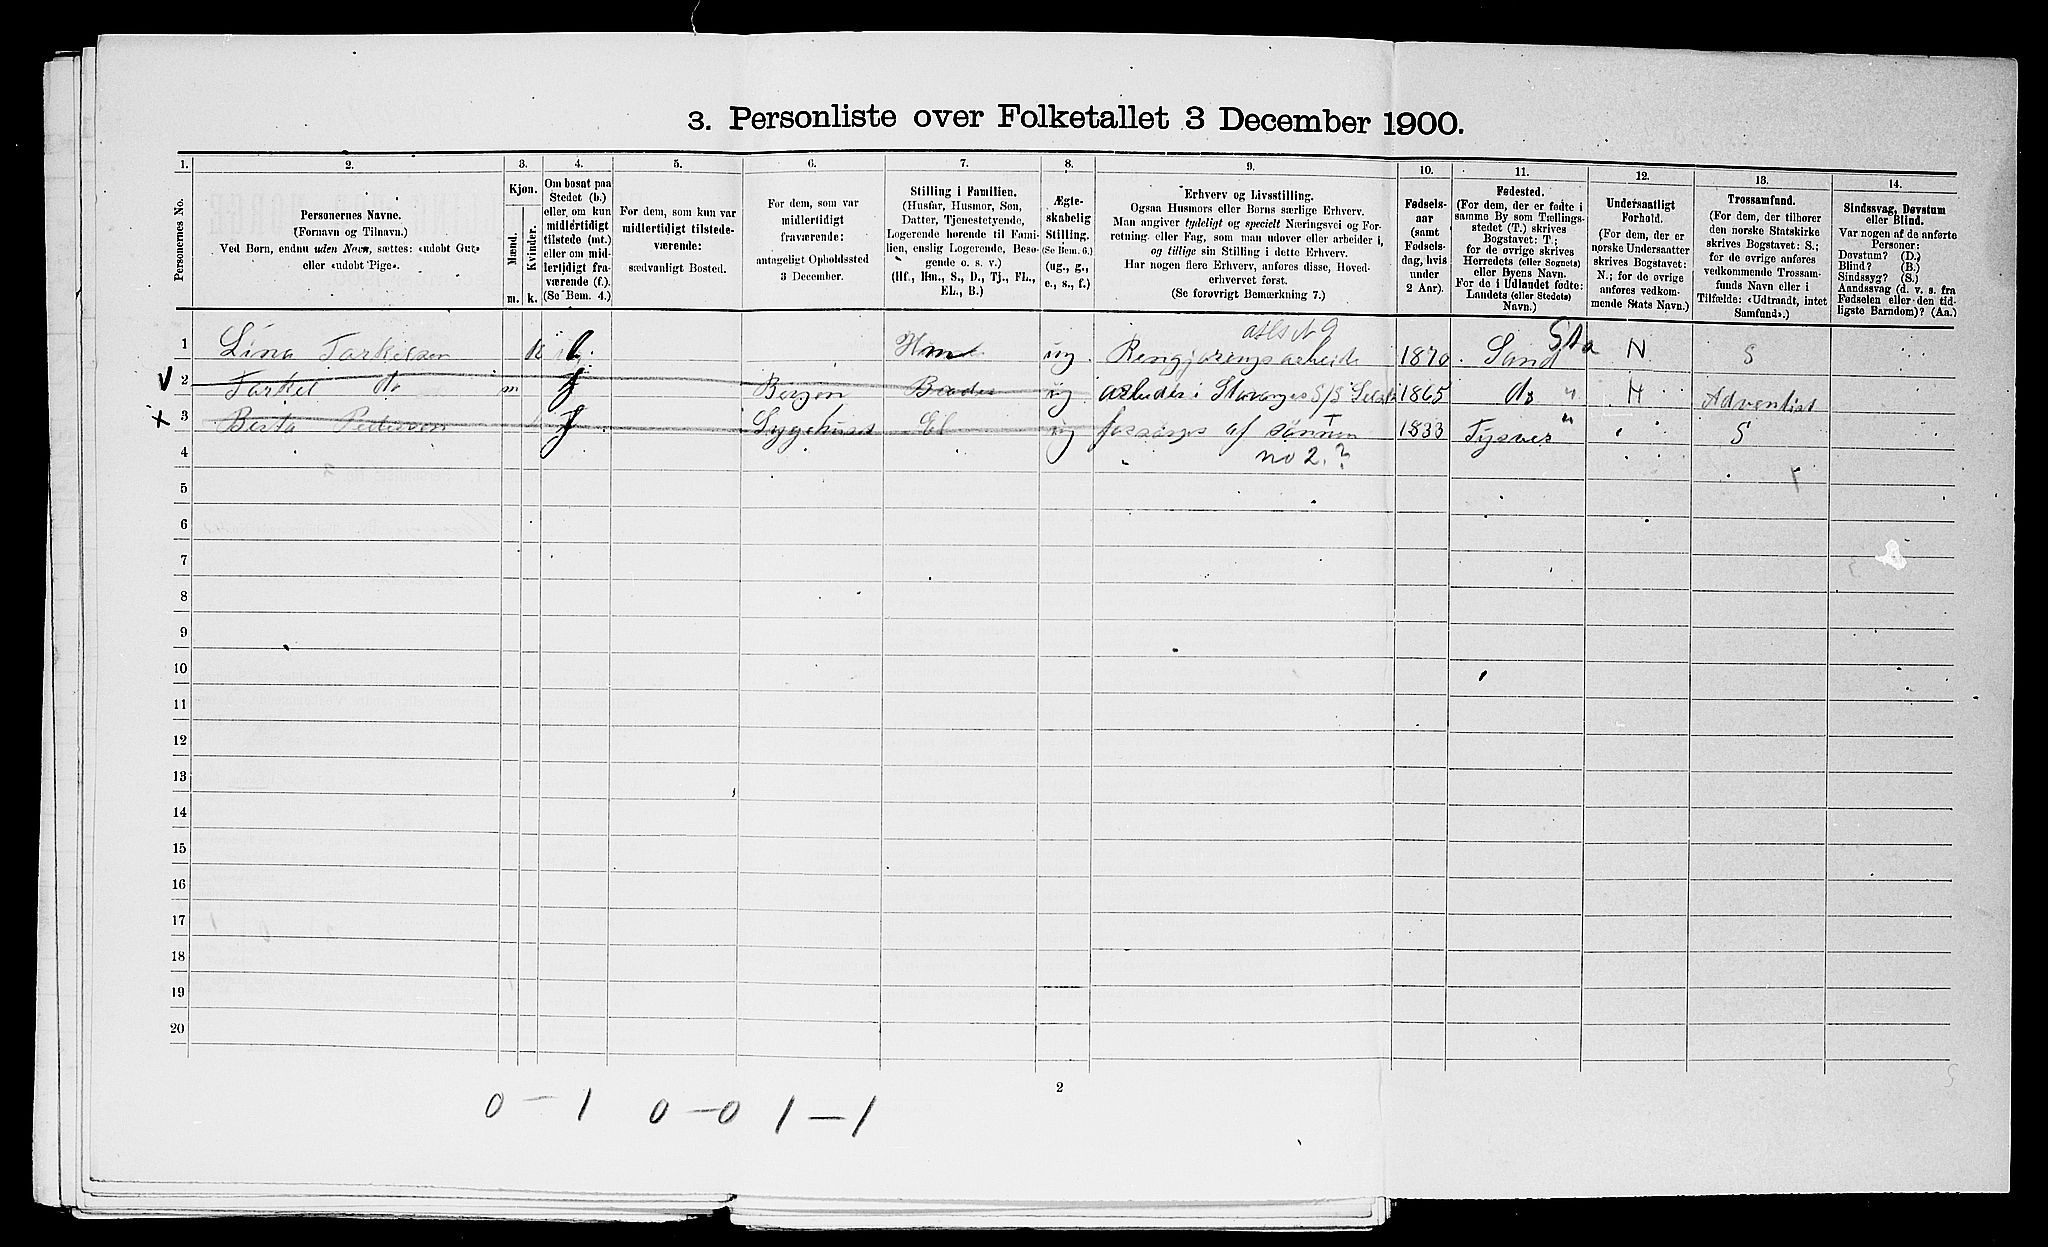 3. Personliste over Folketallet 3 December 1900.
1. 2. 3. 4. 5. 6. 7. 8. 9. 10. 11. 12. 13. 14.
Personernes No.
Personernes Navne.
(Fornavn og Tilnavn.)
Ved Børn, endnu uden Navn, sættes: «udøbt Gut»
eller «udøbt Pige».
Kjøn.
Mænd.
Kvinder.
m. k.
Om bosat paa
Stedet (b.)
eller om kun
midlertidigt
tilstede (mt.)
eller om mid-
lertidigt fra-
værende (f.).
(Se Bem. 4.)
For dem, som kun var
midlertidigt tilstede-
værende:
sædvanligt Bosted.
For dem, som var
midlertidigt
fraværende:
antageligt Opholdssted
3 December.
Stilling i Familien.
(Husfar, Husmor, Søn,
Datter, Tjenestetyende,
Logerende hørende til Fami-
lien, enslig Logerende, Besø-
gende o. s. v.)
(Hf., Hm., S., D., Tj., FL.,
EL., B.)
Ægte-
skabelig
Stilling.
(Se Bem. 6.)
(ug., g.,
e., s., f.)
Erhverv og Livsstilling.
Ogsaa Husmors eller Børns særlige Erhverv.
Man angiver tydeligt og specielt Næringsvei og For-
retning eller Fag, som man udøver eller arbeider i,
og tillige sin Stilling i dette Erhverv.
Har nogen flere Erhverv, anføres disse, Hoved-
erhvervet først.
(Se forøvrigt Bemærkning 7.)
Fødsels-
aar
(samt
Fødsels-
dag, hvis
under
2 Aar).
Fødested.
(For dem, der er fødte i
samme By som Tællings-
stedet (T.) skrives
Bogstavet: T.;
for de øvrige skrives
Herredets (eller Sognets)
eller Byens Navn.
For de i Udlandet fødte:
Landets (eller Stedets)
Navn.)
Undersaatligt
Forhold.
(For dem, der er
norske Undersaatter
skrives Bogstavet:
N.; for de øvrige
anføres vedkom-
mende Stats Navn.)
Trossamfund.
(For dem, der tilhører
den norske Statskirke
skrives Bogstavet: S.;
for de øvrige anføres
vedkommende Trossam-
funds Navn eller i
Tilfælde: «Udtraadt, intet
Samfund».)
Sindssvag, Døvstum
eller Blind.
Var nogen af de anførte
Personer:
Døvstum? (D.)
Blind? (B.)
Sindssyg? (S.)
Aandssvag (d. v. s. fra
Fødselen eller den tid-
ligste Barndom)? (Aa.)
1 Lina Tarkelsen k b. Hm ug Rengjøringsarbeide 1870 Sand Sta N S
V 2 Tarkel do m f Bergen Broder ug arbeider i Stavanger S/S Selsk 1865 do " N Adventist
x 3 Berta Pedersen k f Sygehuset El ug forsørges af sønnen 1833 Tysvær " S
4 no 2.?
5
6
7
8
9
10
11
12
13
14
15
16
17
18
19
20
2
0 - 1 0 - 0 1 - 1